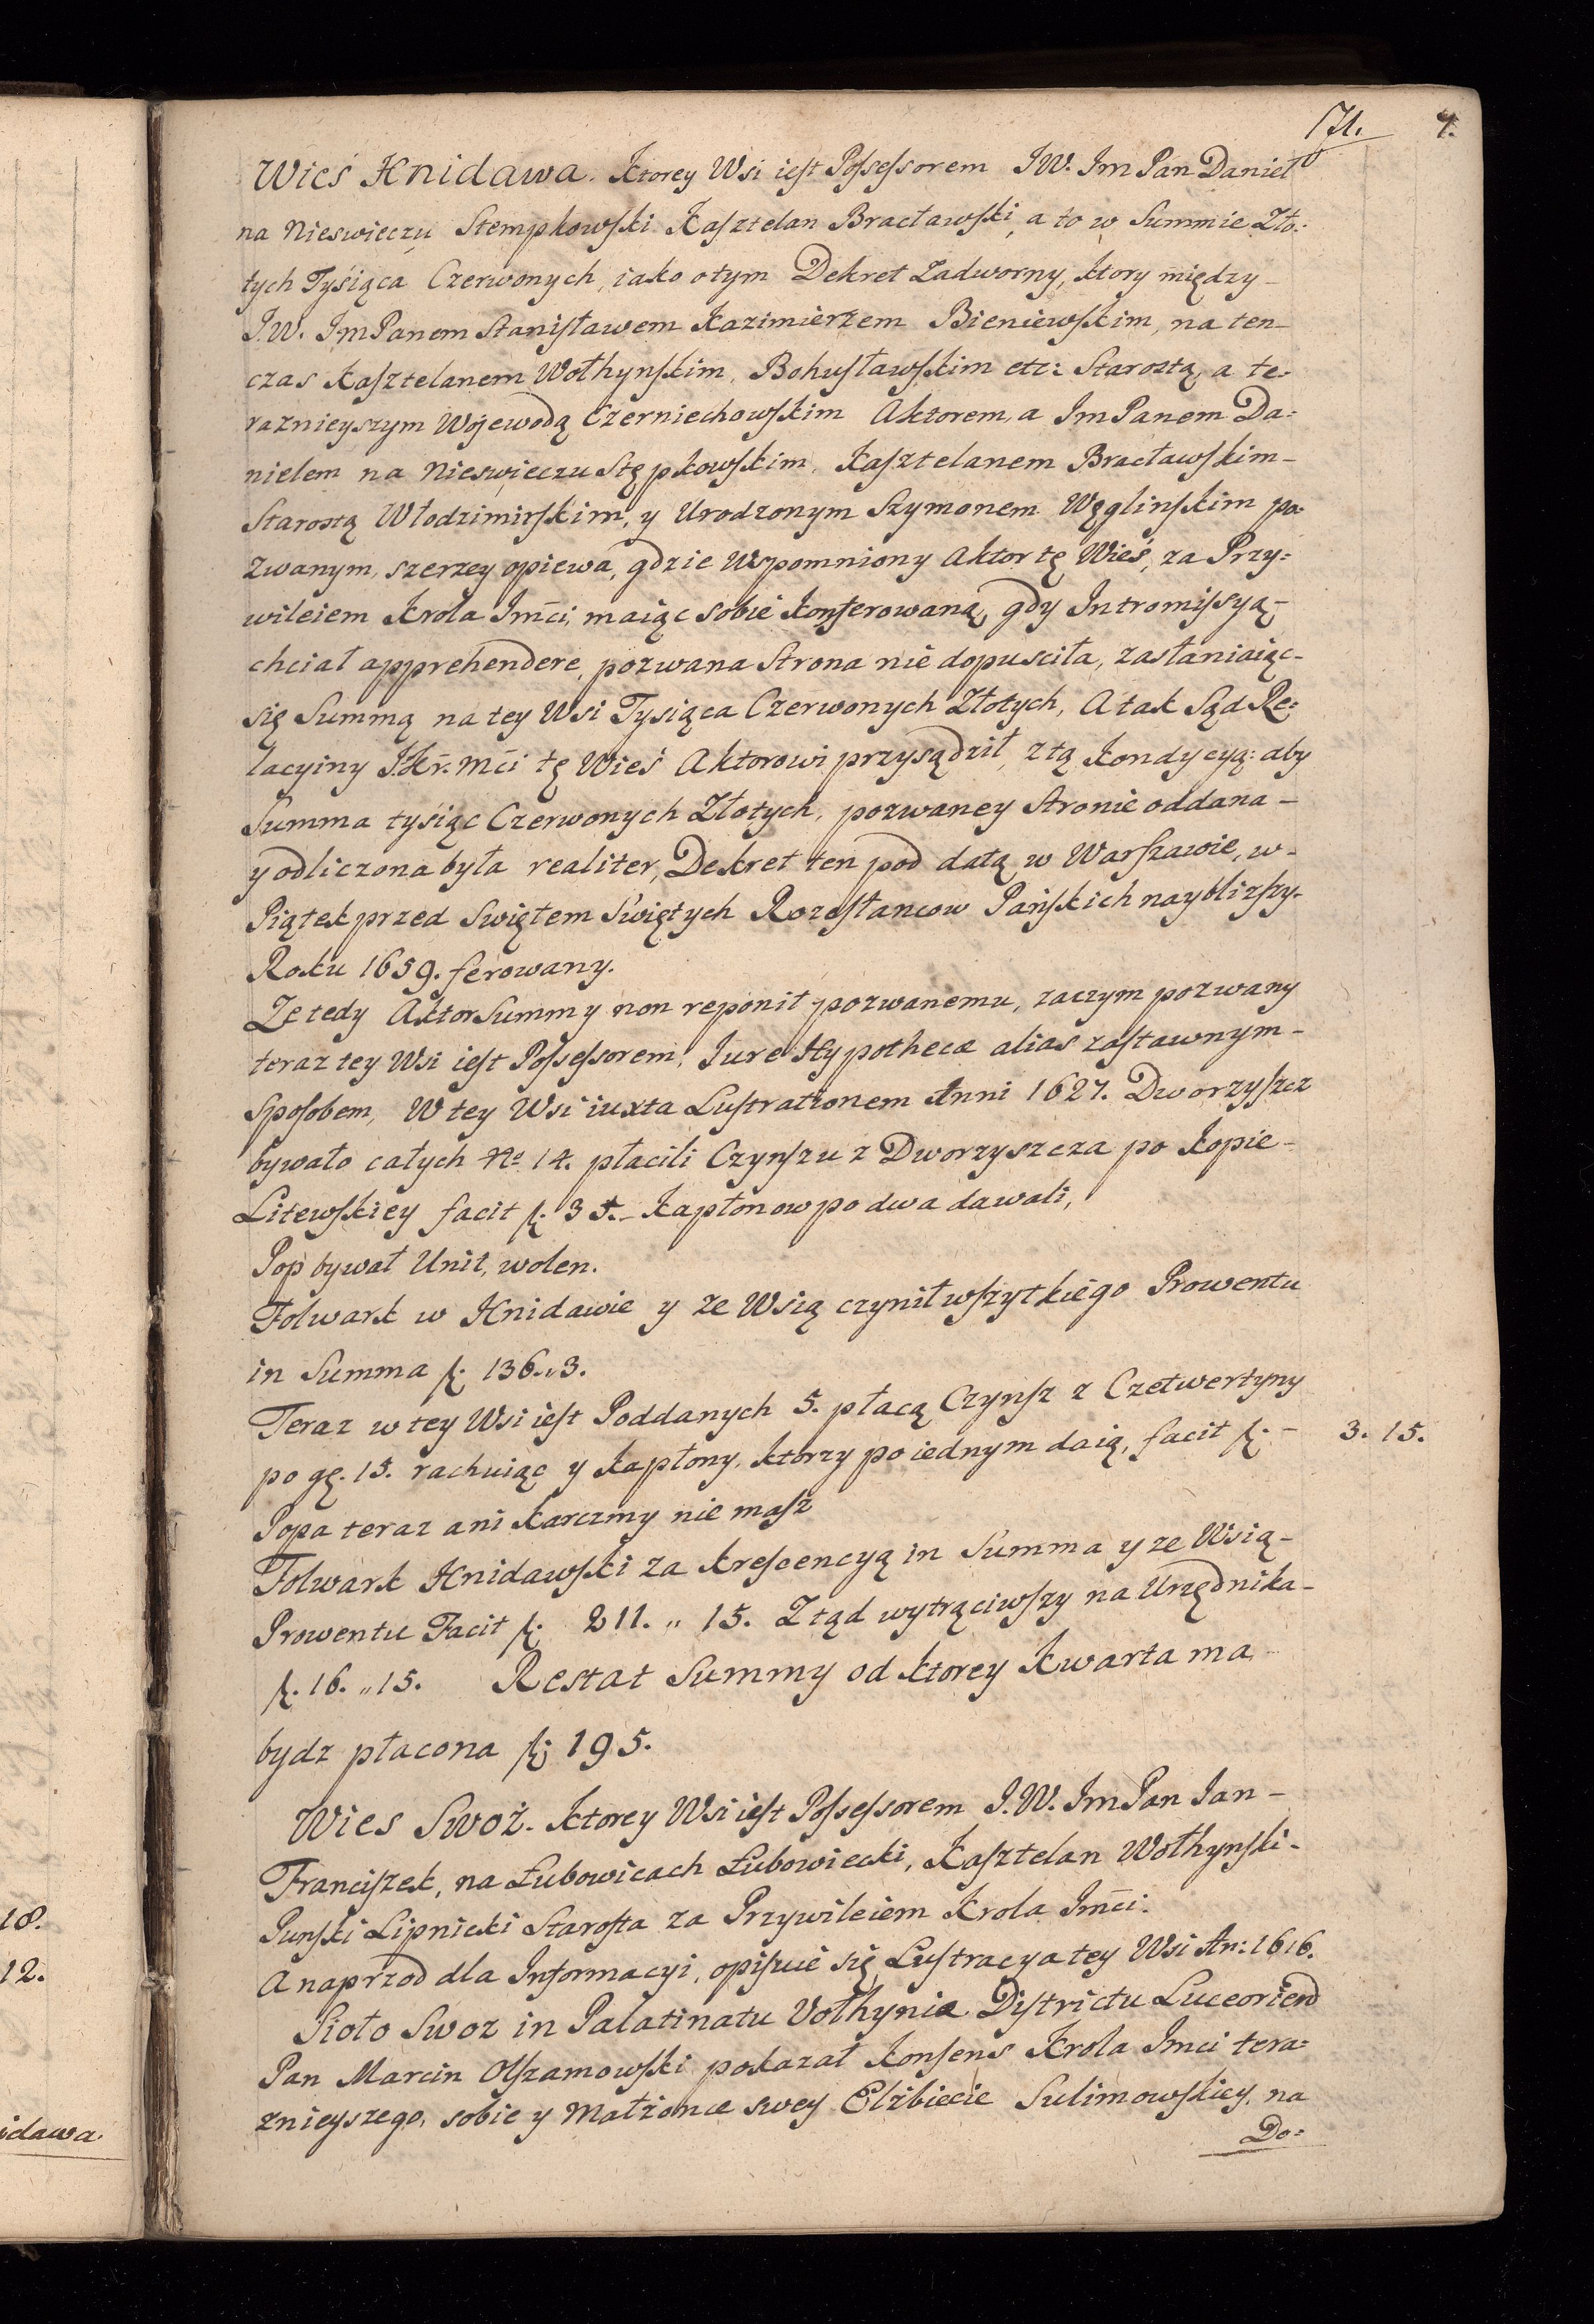 171.
7.
Wieś Hnidawa. Ktorey Wsi iest Possessorem JW. Im Pan Daniel
na Nieswieczu Stempkowski Kasztelan Bracławski, a to w Summie Zło:
tych Tysiąca Czerwonych, iako o tym Dekret Zadworny, ktory między -
J.W. Im Panem Stanisławem Kazimierzem Bieniewskim, na ten-
czas Kasztelanem Wołhynskim, Bohusławskim etc: Starostą, a te-
raznieyszym Wojewodą Czerniechowskim Aktorem, a Im Panem Da:
nielem na Nieswieczu Stępkowskim, Kasztelanem Bracławskim -
Starostą Włodzimirskim, y Urodzonym Szymonem Węglinskim po:
zwanym, szerzey opiewa, gdzie Wspomniony Aktor tę Wieś, za Przy:
wileiem Krola Imci, maiąc sobie konferowaną, gdy Intromissyą -
chciał apprehendere, pozwana Strona nie dopusciła, zasłaniaiąc -
się Summą na tey Wsi Tysiąca Czerwonych Złotych, A tak Sąd Re:
lacyiny J.Kr. Mci tę Wieś Aktorowi przysądził, z tą Kondycyą: aby
Summa tysiąc Czerwonych Złotych, pozwaney Stronie oddana -
y odliczona była realiter, Dekret ten pod datą w Warszawie, w -
Piątek przed Swiętem Swiętych Rozesłancow Pańskich nayblizszy.
Roku 1659. ferowany.
Ze tedy Aktor Summy non reponit pozwanemu, zaczym pozwany
teraz tey Wsi iest Possessorem, Jure Hypothecæ alias zastawnym -
Sposobem, W tey Wsi iuxta Lustrationem Anni 1627. Dworzyszcz
bywało całych No 14. płacili Czynszu z Dworzyszcza po Kopie -
Litewskiey facit f. 35. - Kapłonow po dwa dawali,
Pop bywał Unit, wolen.
Folwark w Hnidawie y ze Wsią czynił wszytkiego Prowentu
in Summa f. 136.,,3.
Teraz w tey Wsi iest Poddanych 5. płacą Czynsz z Czetwertyny
po gę. 15. rachuiąc y Kapłony, ktorzy po iednym daią, facit f. - 3. 15.
Popa teraz ani Karczmy nie masz
Folwark Hnidawski za Krescencyą in Summa y ze Wsią -
Prowentu Facit f. 211. ,, 15. Ztąd wytrąciwszy na Urzędnika -
f. 16. ,, 15. Restat Summy od ktorey Kwarta ma -
bydz płacona f. 195.
Wies Swoż. Ktorey Wsi iest Possessorem J.W. Im Pan Jan -
Franciszek, na Łubowicach Łubowiecki, Kasztelan Wołhynski -
Punski Lipnicki Starosta za Przywileiem Krola Imci.
A naprzod dla Informacyi, opisuie się Lustracya tey Wsi An: 1616.
Sioło Swoz in Palatinatu Volhyniæ Districtu Luceorien
Pan Marcin Olszamowski pokazał Konsens Krola Imci tera:
znieyszego, sobie y Małżonce swey Elżbiecie Sulimowskiey, na
Do:
18.
12.
idawa